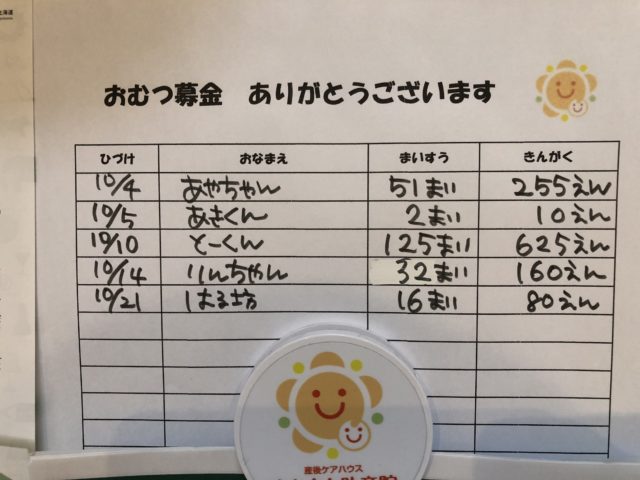 おむつ募金 ありがとうございます
ひづけ おなまえ まいすう きんがく
10/4 あやちゃん 51まい 255えん
10/5 あきくん 2まい 10えん
10/10 とーくん 125まい 625えん
10/14 りんちゃん 32まい 160えん
10/21 はる坊 16まい 80えん
産後ケアハウス